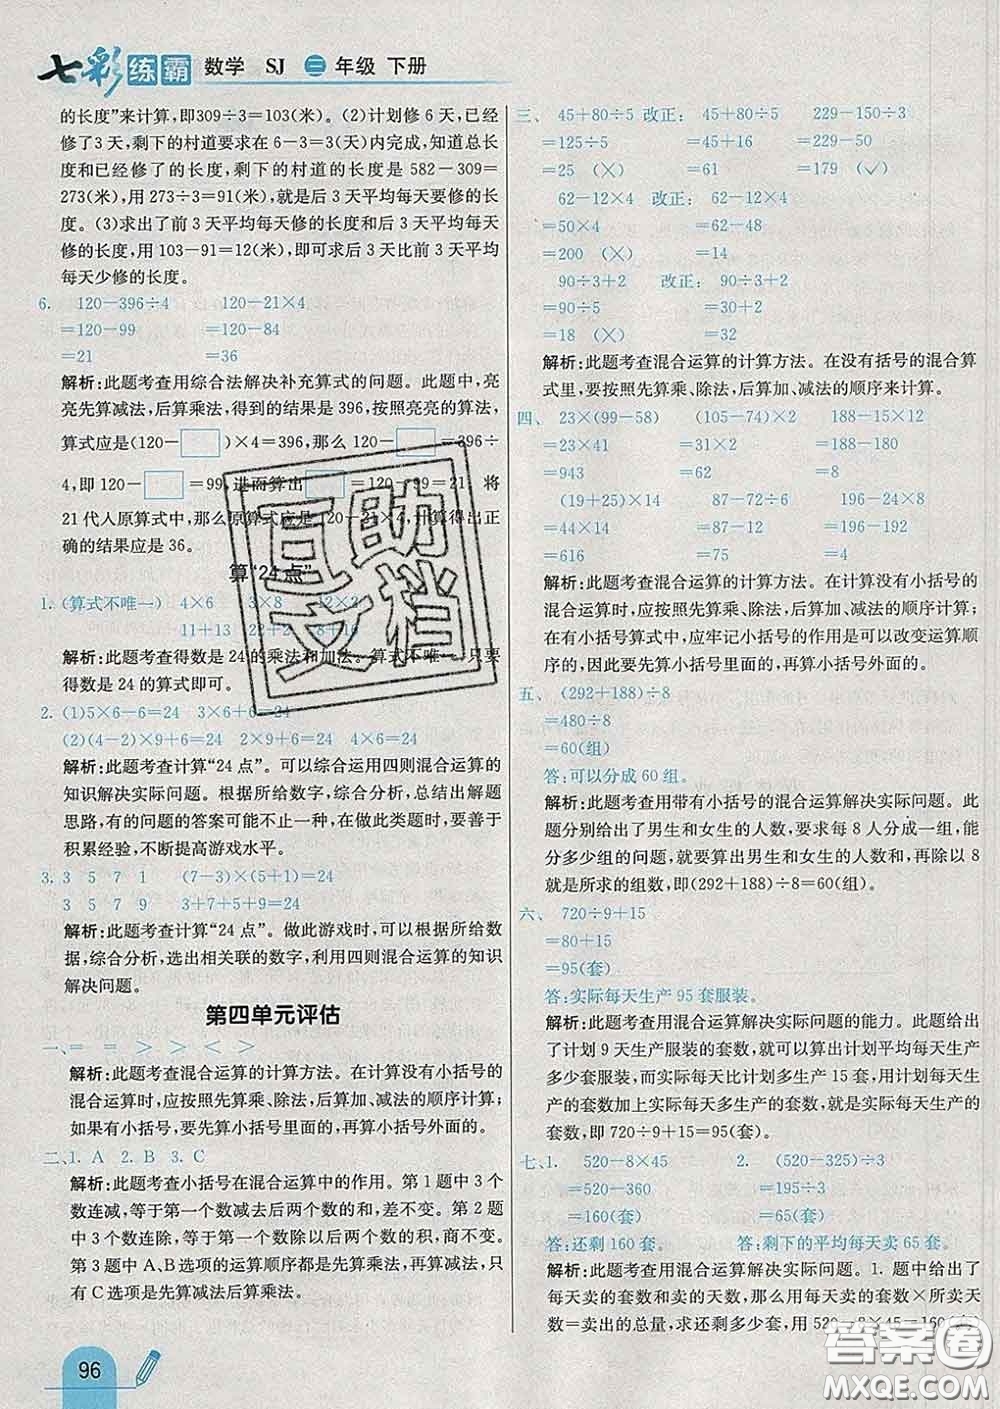 七彩练霸 数学 SJ 三年级 下册
的长度”来计算,即309÷3=103(米)。(2)计划修 6 天,已经
修了3 天,剩下的村道要求在 6-3=3(天)内完成,知道总长
度和已经修了的长度,剩下的村道的长度是 582-309=
273(米),用 273÷3=91(米),就是后 3 天平均每天要修的长
度。(3)求出了前 3 天平均每天修的长度和后 3 天平均每天
修的长度,用 103-91=12(米),即可求后 3 天比前 3 天平均
每天少修的长度。
6. 120-396÷4 120-21×4
=120-99 =120-84
=21 =36
解析:此题考查用综合法解决补充算式的问题。此题中,亮
亮先算减法,后算乘法,得到的结果是 396,按照亮亮的算法,
算式应是(120-□)×4=396,那么 120-□=396÷
4,即 120-□=99,进而算出□=120-99=21。将
21 代人原算式中,那么原算式应是 120-21×4,计算得出正
确的结果应是 36。
算“24 点”
1. (算式不唯一) 4×6 3×8 12×2
11+13 22+2 8+16
解析:此题考查得数是 24 的乘法和加法。算式不唯一,只要
得数是 24 的算式即可。
2. (1)5×6-6=24 3×6+6=24
(2)(4-2)×9+6=24 2×9+6=24 4×6=24
解析:此题考查计算“24 点”。可以综合运用四则混合运算的
知识解决实际问题。根据所给数字,综合分析,总结出解题
思路,有的问题的答案可能不止一个,在做此类题时,要善于
积累经验,不断提高游戏水平。
3. 3 5 7 1 (7-3)×(5+1)=24
3 5 7 9 3+7+5+9=24
解析:此题考查计算“24 点”。做此游戏时,可以根据所给数
据,综合分析,选出相关联的数字,利用四则混合运算的知识
解决问题。
第四单元评估
一、= = > > < >
解析:此题考查混合运算的计算方法。在计算没有小括号的
混合运算时,应按照先算乘、除法,后算加、减法的顺序计算;
如果有小括号,要先算小括号里面的,再算小括号外面的。
二、1. A 2. B 3. C
解析:此题考查小括号在混合运算中的作用。第 1 题中 3 个
数连减,等于第一个数减去后两个数的和,差不变。第 2 题
中 3 个数连除,等于第一个数除以后两个数的积,商不变。
第 3 题中 A、B选项的运算顺序都是先算乘法,再算减法,只
有 C 选项是先算减法后算乘法。
96
三、 45+80÷5 改正: 45+80÷5 229-150÷3
=125÷5 =45+16 =229-50
=25 (×) =61 =179 (√)
62-12×4 改正: 62-12×4
=50×4 =62-48
=200 (×) =14
90÷3+2 改正: 90÷3+2
=90÷5 =30+2
=18 (×) =32
解析:此题考查混合运算的计算方法。在没有括号的混合算
式里,要按照先算乘、除法,后算加、减法的顺序来计算。
四、 23×(99-58) (105-74)×2 188-15×12
=23×41 =31×2 =188-180
=943 =62 =8
(19+25)×14 87-48÷4 196-24×8
=44×14 =87-12 =196-192
=616 =75 =4
解析:此题考查混合运算的计算方法。在计算没有小括号的
混合运算时,应按照先算乘、除法,后算加、减法的顺序计算;
在有小括号算式中,应牢记小括号的作用是可以改变运算顺
序的,因此要先算小括号里面的,再算小括号外面的。
五、 (292+188)÷8
=480÷8
=60(组)
答:可以分成 60 组。
解析:此题考查用带有小括号的混合运算解决实际问题。此
题分别给出了男生和女生的人数,要求每 8 人分成一组,能
分多少组的问题,就要算出男生和女生的人数和,再除以 8
就是所求的组数,即(292+188)÷8=60(组)。
六、 720÷9+15
=80+15
=95(套)
答:实际每天生产 95 套服装。
解析:此题考查用混合运算解决实际问题的能力。此题给出
了计划 9 天生产服装的套数,就可以算出计划平均每天生产
多少套服装,而实际每天比计划多生产 15 套,用计划每天生
产的套数加上实际每天多生产的套数,就是实际每天生产的
套数,即 720÷9+15=95(套)。
七、1. 520-8×45 2. (520-325)÷3
=520-360 =195÷3
=160(套) =65(套)
答:还剩 160 套。 答:剩下的平均每天卖 65 套。
解析:此题考查用混合运算解决实际问题。1. 题中给出了
每天卖的套数和卖的天数,那么用每天卖的套数×所卖天
数=卖出的总量,求还剩多少套,用 520-8×45=160(套)
互助文档
答案圈
MXQE.COM